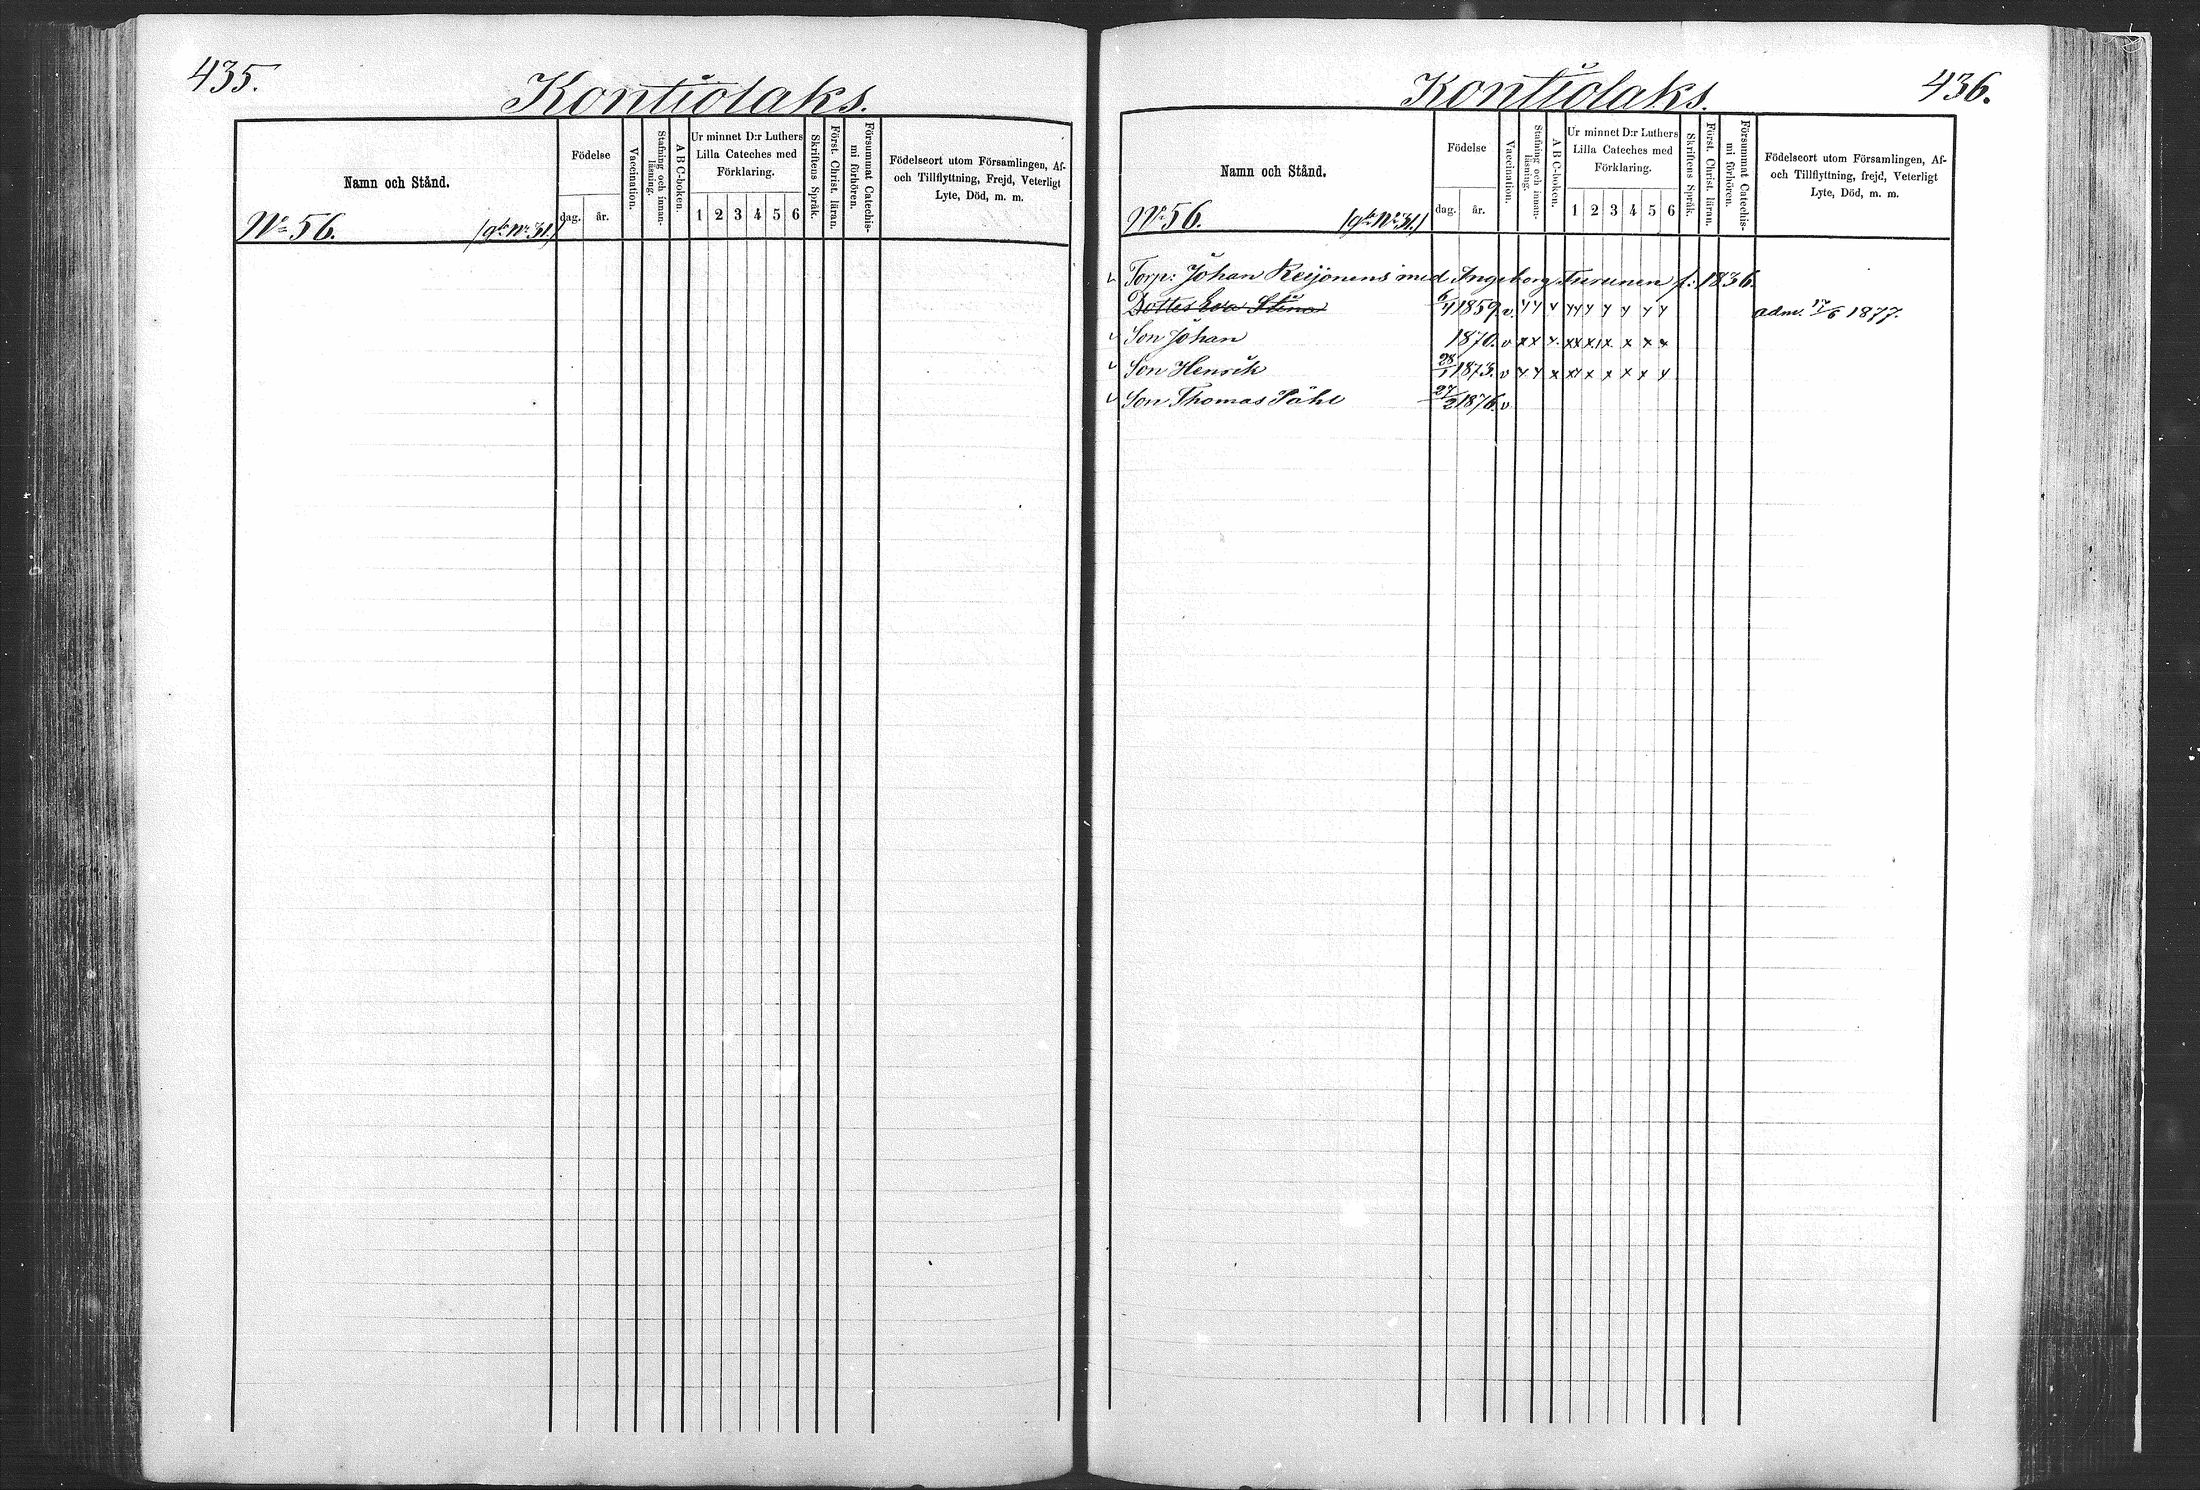 435.
Kontiolaks.
Namn och Stånd.
Födelse
dag.
år.
Vaccination.
Stafning och innan-
läsning.
A B C-boken.
Ur minnet D:r Luthers
Lilla Cateches med
Förklaring.
1 2 3 4 5 6
Skriftens Språk.
Först. Christ. läran.
Försummat Catechis-
mi förhören.
Födelseort utom Församlingen, Af-
och Tillflyttning, Frejd, Veterligt
Lyte, Död, m. m.
No 56. /gla No 31./
Kontiolaks.
436.
Namn och Stånd.
Födelse
dag.
år.
Vaccination.
Stafning och innan-
läsning.
A B C-boken.
Ur minnet D:r Luthers
Lilla Cateches med
Förklaring.
1 2 3 4 5 6
Skriftens Språk.
Först. Christ. läran.
Försummat Catechis-
mi förhören.
Födelseort utom Församlingen, Af-
och Tillflyttning, frejd, Veterligt
Lyte, Död, m. m.
No 56. /gla No 31./
Torp: Johan Reijonens med Ingeborg Turunen f: 1836.
Dotter Eva Stina 6/4 1859 v. adm. 17/6 1877.
Son Johan 1870. v x x x. x x x x x x x
Son Henrik 28/1 1873. v
Son Thomas Påhl 27/2 1876. v